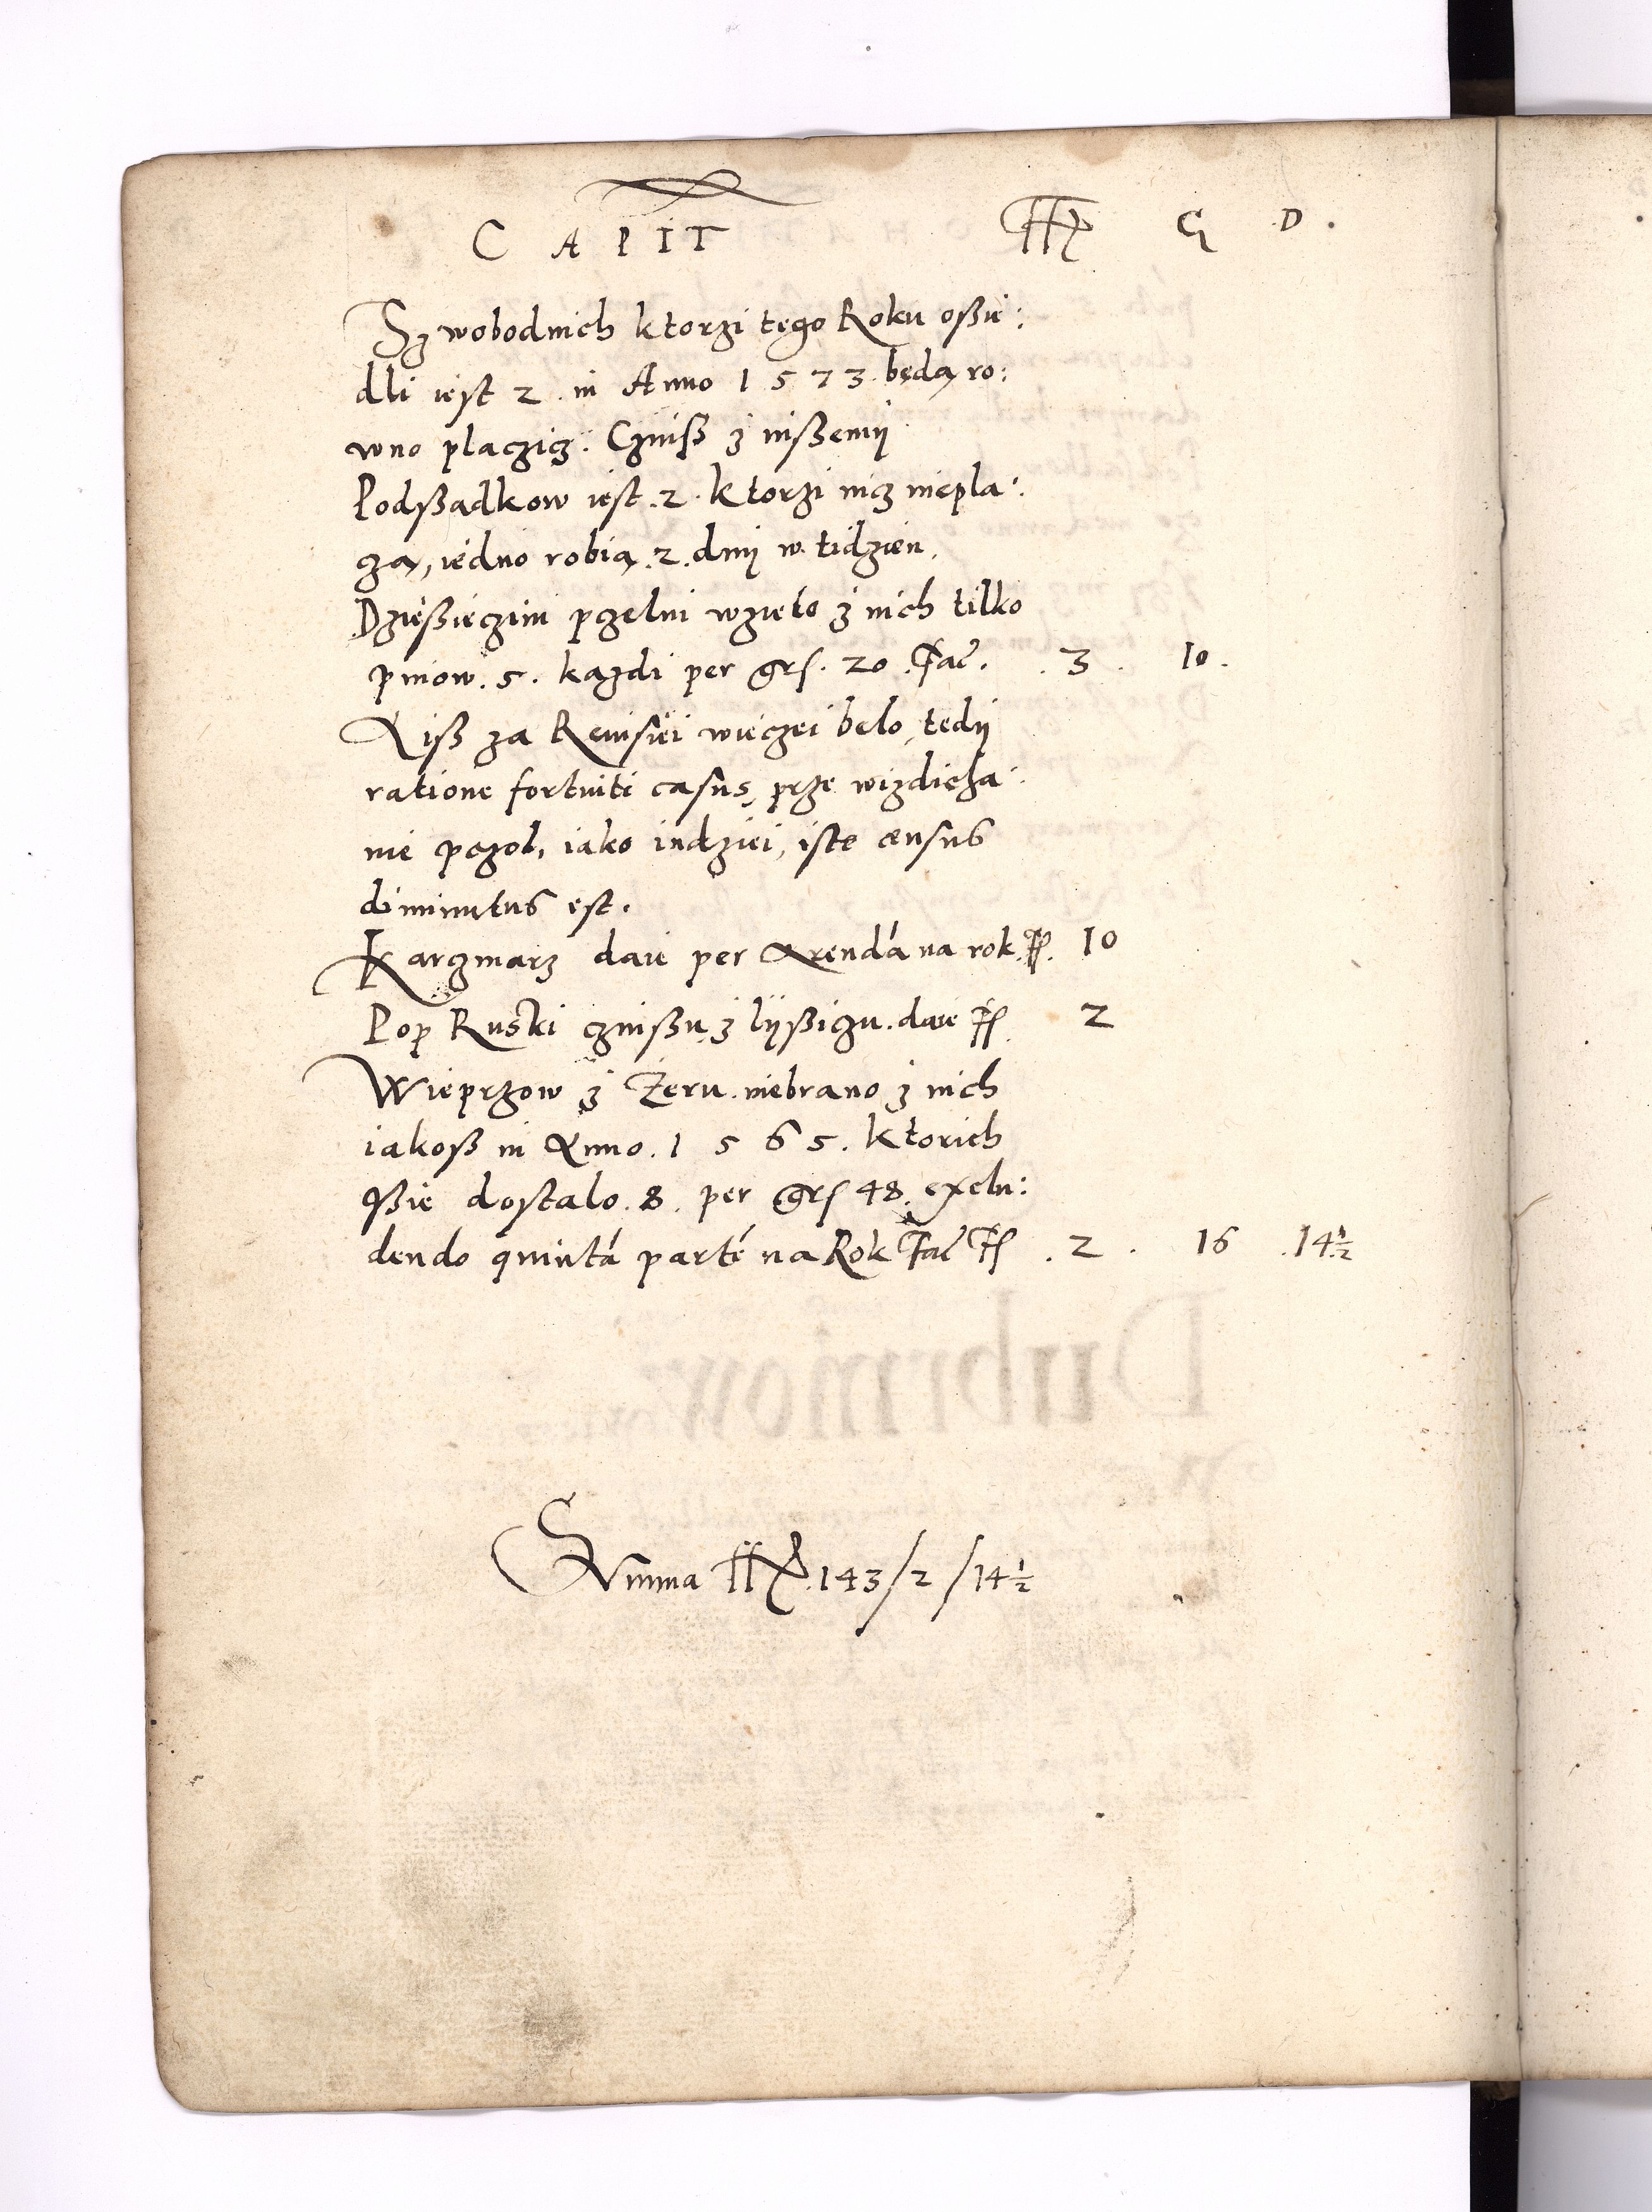 C A P I T ffl G D.
Szwobodnich ktorzi tego Roku oßie:
dli iest 2. in Anno 1573. będą ro:
wno placzicz. Czinß z inßemÿ
Podßadkow iest. 2. ktorzi nicz niepla:
czą, iedno robią. 2. dnÿ w tidzien.
Dzießieczini pczelni wzięto z nich tilko
pniow. 5. kazdi per grſ. 20. Fac̃. . 3 . 10.
Aiß za Reuisiei wieczei belo, tedÿ
ratione fortuiti casus, prze wizdicha:
nie pczol, iako indziei, iste census
diminutus est.
Karczmarz daie per Arendá na rok. fl. 10
Pop Ruski czinßu z lÿßiczu. daie fl 2
Wieprzow z Żeru. niebrano z nich
iakoß in Anno. 1565. ktorich
ßie dostalo. 8. per grſ 48. exclu:
dendo quintá parté na Rok Fac̃ fl . 2 . 16 .14½
Summa ffl. 143/2/14½